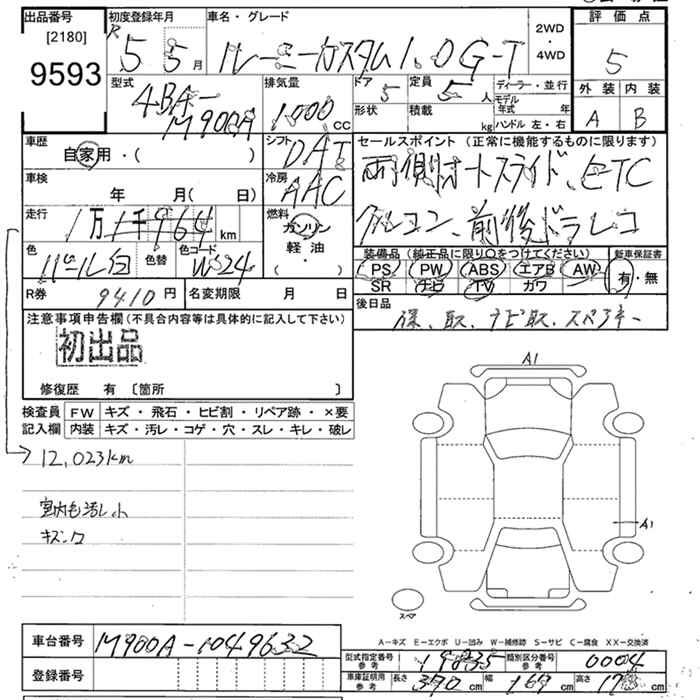 出品番号
[2180]
9593
初度登録年月
R 5 5 月
車名・グレード
ルーミーカスタム1.0G-T
2WD
・
4WD
評価点
5
型式
4BA-
M900A
排気量
1000
cc
ドア
5
定員
5 人
ディーラー・並行
モデル
年式 年
形状
積載
kg
ハンドル 左・右
外装 内装
A B
車歴
自家用・( )
シフト
DAT
セールスポイント (正常に機能するものに限ります)
両側オートスライド、ETC
クルコン、前後ドラレコ
車検
年 月( 日)
冷房
AAC
走行
1万1千964 km
燃料
ガソリン
軽油
・
( )
色
パール白
色替
色コード
W24
R券
9410円
名変期限 月 日
装備品(純正品に限り○をつけてください)
PS PW ABS エアB AW
SR ナビ TV カワ
新車保証書
有・無
後日品
保、取、ナビ取、スペアキー
注意事項申告欄(不具合内容等は具体的に記入して下さい)
初出品
修復歴 有 〔箇所 〕
検査員
記入欄
FW キズ・飛石・ヒビ割・リペア跡・×要
内装 キズ・汚レ・コゲ・穴・スレ・キレ・破レ
12,023km
室内色汚レ小
A1
A1
スペア
A-キズ E-エクボ U-凹み W-補修跡 S-サビ C-腐食 XX-交換済
車台番号
M900A-1049632
登録番号
型式指定番号
参考
19835
類別区分番号
参考
0004
車庫証明用
参考
長さ 370 cm
幅 169 cm
高さ 173 cm